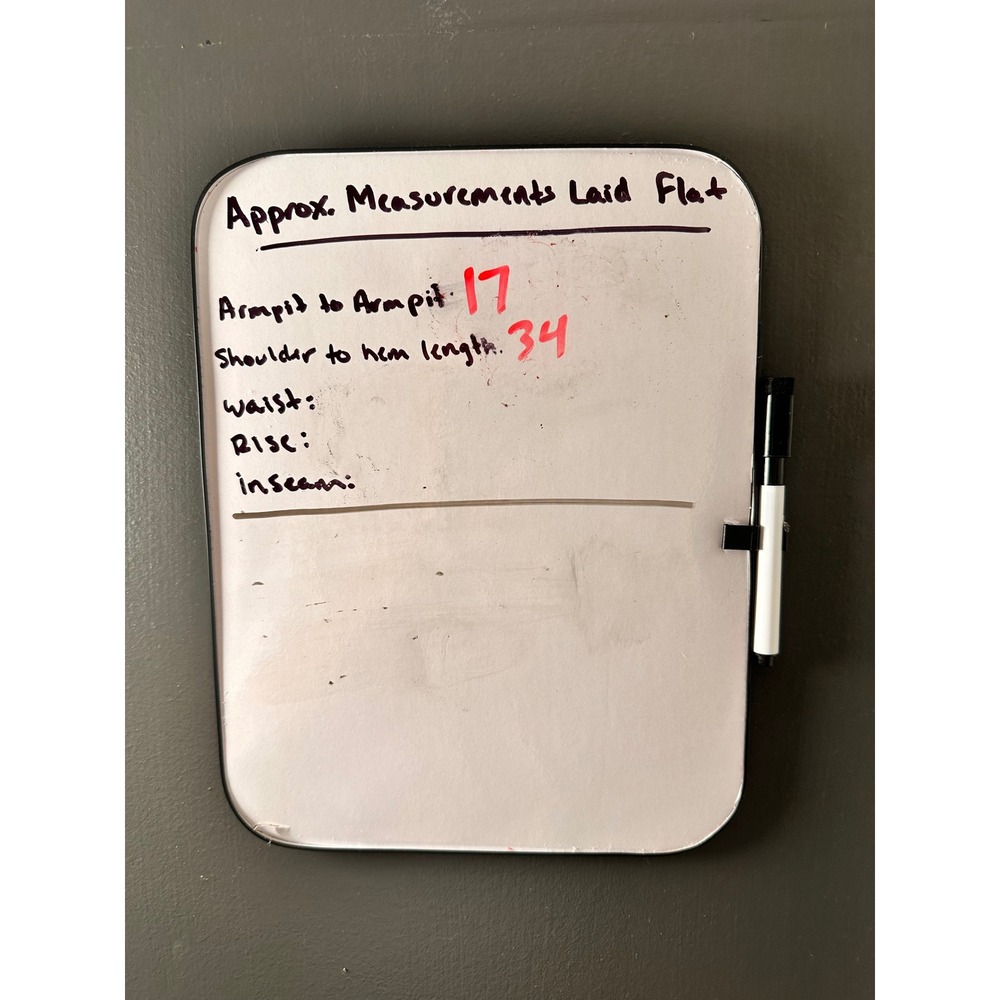 Approx. Measurements Laid Flat
Armpit to Armpit. 17
Shoulder to hem length. 34
waist:
Rise:
inseam: